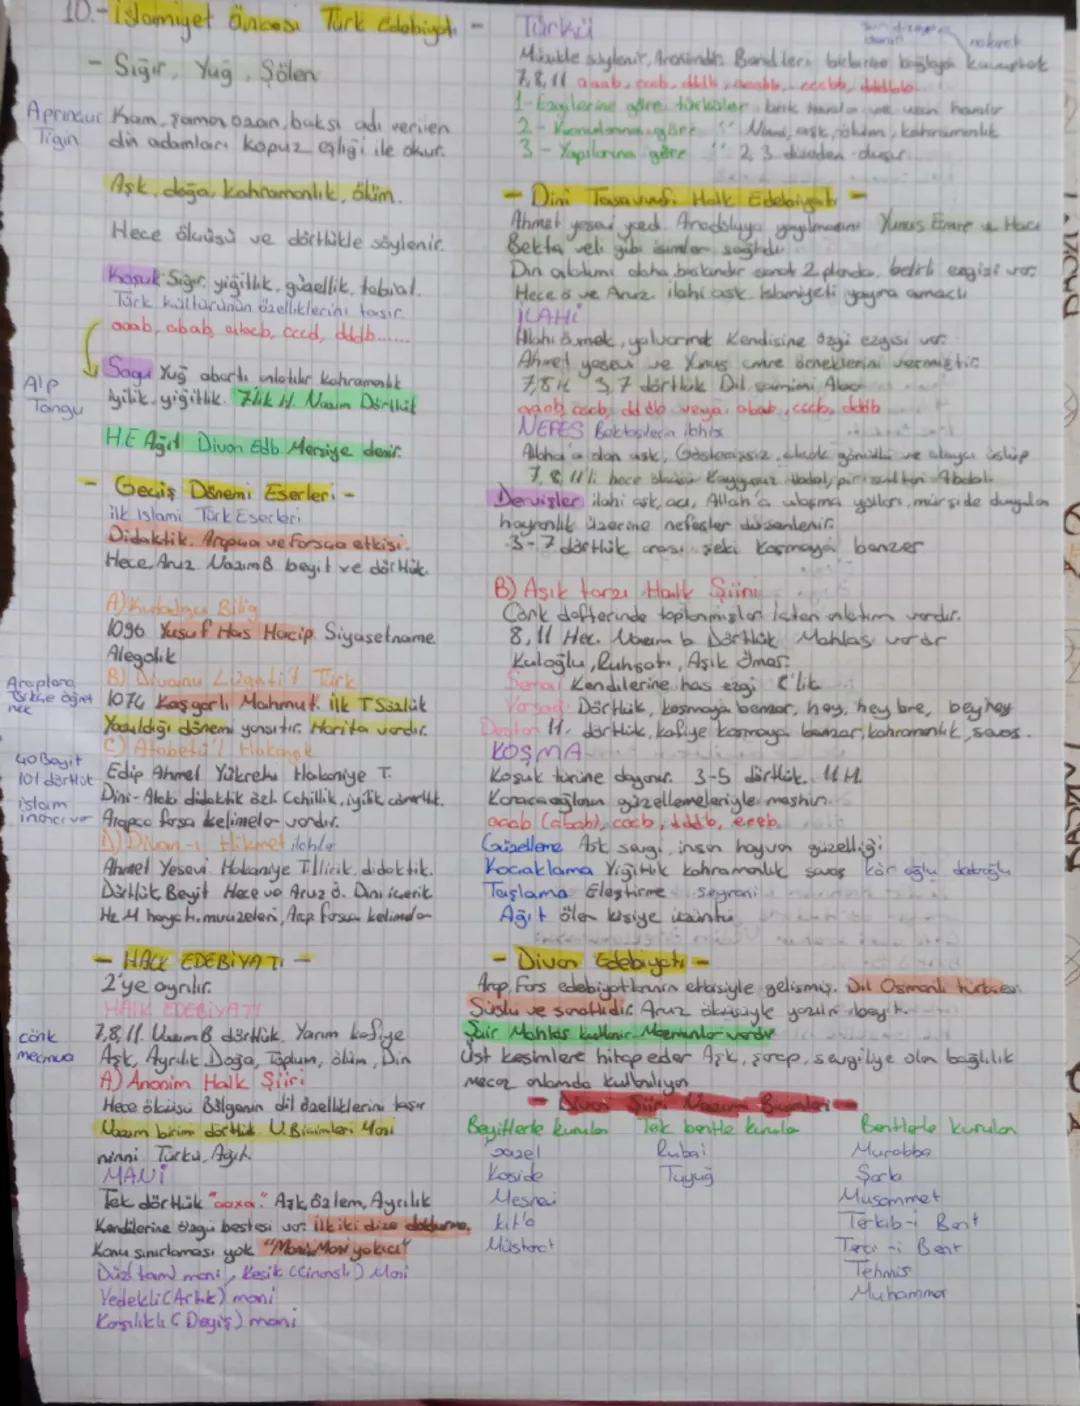 10.- İslamiyet Öncesi Türk Edebiyatı -
- Sığır, Yuğ, Şölen
Aprınçur Tigin
Kam, şaman ozan, baksı adı verilen
din adamları kopuz eşliği ile okur.
Aşk, doğa, kahramanlık, ölüm.
Hece ölçüsü ve dörtlükle söylenir.
Koşuk Sığır, yiğitlik, güzellik, tabiat.
Türk kültürünün özelliklerini taşır
aaab, abab, cccb, cccd, dddb......
Alp Tonga
Sagu Yuğ abartı anlatılır kahramanlık
iyilik, yiğitlik. 7'lik H. Nazım Dörtlük
H.E Ağıt Divan Edb. Mersiye denir.
- Geçiş Dönemi Eserleri -
ilk İslami Türk Eserleri
Didaktik. Arapça ve Farsça etkisi.
Hece, Aruz Nazım B. beyit ve dörtlük.
A) Kutadgu Bilig
1096 Yusuf Has Hacip. Siyasetname
Alegolik
B) Divanu Lügati't Türk
Araplara Türkçe öğretmek
1074 Kaşgarlı Mahmut. ilk T Sözlük
Yazıldığı dönemi yansıtır. Harita vardır.
C) Atabetü'l Hakayık
40 Beyit
101 dörtlük
islam inancı var
Edip Ahmet Yükneki Hakaniye T.
Dini-Ahlaki didaktik özl. Cahillik, iyilik, cömertlik.
Arapça farsça kelimeler vardır.
D) Divan-ı Hikmet
Ahmet Yesevi Hakaniye T. lirik, didaktik.
Dörtlük, Beyit Hece ve Aruz ö. Dini içerik
Hz. M hayatı, mucizeleri, Arap farsça kelimeler
- HALK EDEBİYATI -
2'ye ayrılır.
HALK EDEBİYATI
cönk
mecmua
7,8,11. Nazım B dörtlük. Yarım kafiye
Aşk, Ayrılık, Doğa, Toplum, ölüm, Din
A) Anonim Halk Şiiri
Hece ölçüsü Bölgenin dil özelliklerini taşır
Nazım birimi dörtlük N. Biçimleri Mani
ninni Türkü, Ağıt
MANİ
Tek dörtlük "aaxa". Aşk, özlem, Ayrılık
Kendilerine özgü bestesi var. ilk iki dize doldurma,
Konu sınırlaması yok "Mani, Mani yakıcı"
Düz (tam) mani, Kesik (Cinaslı) Mani
Yedekli (Artık) mani
Karşılıklı (Deyiş) mani
Türkü
nakarat
Müzikle söylenir, Anonimdir. Bendleri birbirine bağlayan kavuştak
1- Ezgilerine göre türküler kırık havalar ve uzun havalar
2- Konularına göre " Ninni, aşk, ölüm, kahramanlık
3- Yapılarına göre " 2, 3 dizeden oluşur.
- Dini Tasavvufi Halk Edebiyatı -
Ahmet yesevi Anadoluya yayılmasını Yunus Emre ve Hacı
Bekta veli gibi isimler sağladı.
Din anlatımı daha baskındır sanat 2. planda, belirli ezgisi var.
Hece ö ve Aruz. ilahi aşk. İslamiyeti yayma amaçlı
İLAHİ
Allahı övmek, yalvarmak Kendisine özgü ezgisi var.
Ahmet yesevi ve Yunus emre örneklerini vermiştir.
7,8 H 3,7 dörtlük Dil samimi
aaab, cccb, dddb veya abab, cccb, dddb
NEFES Bektaşilerin ilahisi
Allaha olan aşk, Gösterişsiz, alçak gönüllü ve alaycı üslup
7, 8, 11'li hece ölçüsü Kaygusuz Abdal, pir sultan Abdal
Dervişler ilahi aşk, acı, Allah'a ulaşma yolları, mürşide duyulan
hayranlık üzerine nefesler düzenlenir.
3-7 dörtlük arası şekli koşmaya benzer
B) Aşık tarzı Halk Şiiri
Cönk defterinde toplanmışlar içten anlatım vardır.
8, 11 Hec. Nazım b. Dörtlük Mahlas vardır
Kuloğlu, Ruhsati, Aşık Ömer.
Semai Kendilerine has ezgi 8'lik
Varsağı Dörtlük, koşmaya benzer, hey, hey bre, bey hey
Destan 11. dörtlük, kafiye koşmaya benzer, kahramanlık, savaş.
KOŞMA
Koşuk türüne dayanır. 3-5 dörtlük. 11 H.
Karacaoğlanın güzellemeleriyle meşhur.
aaab (abab), cccb, dddb, eeeb
Güzelleme Aşk, sevgi, insan hayvan güzelliği
Koçaklama Yiğitlik kahramanlık savaş kör oğlu dadaloğlu
Taşlama Eleştirme seyrani
Ağıt ölen kişiye üzüntü
- Divan Edebiyatı -
Arap, Fars edebiyatlarının etkisiyle gelişmiş. Dil Osmanlı türkçesi.
Süslü ve sanatlıdır. Aruz ölçüsüyle yazılır beyit.
Şair Mahlas kullanır. Mazmunlar vardır
Üst kesimlere hitap eder Aşk, şarap, sevgiliye olan bağlılık
mecaz anlamda kullanılıyor
- Divan Şiiri Nazım Biçimleri -
Beyitlerle kurulan Tek bentle kurulan Bentlerle kurulan
gazel Rubai Murabba
Kaside Tuyuğ Şarkı
Mesnevi Musammet
kıt'a Terkib-i Bent
Müstezat Terci-i Bent
Tahmis
Muhammes